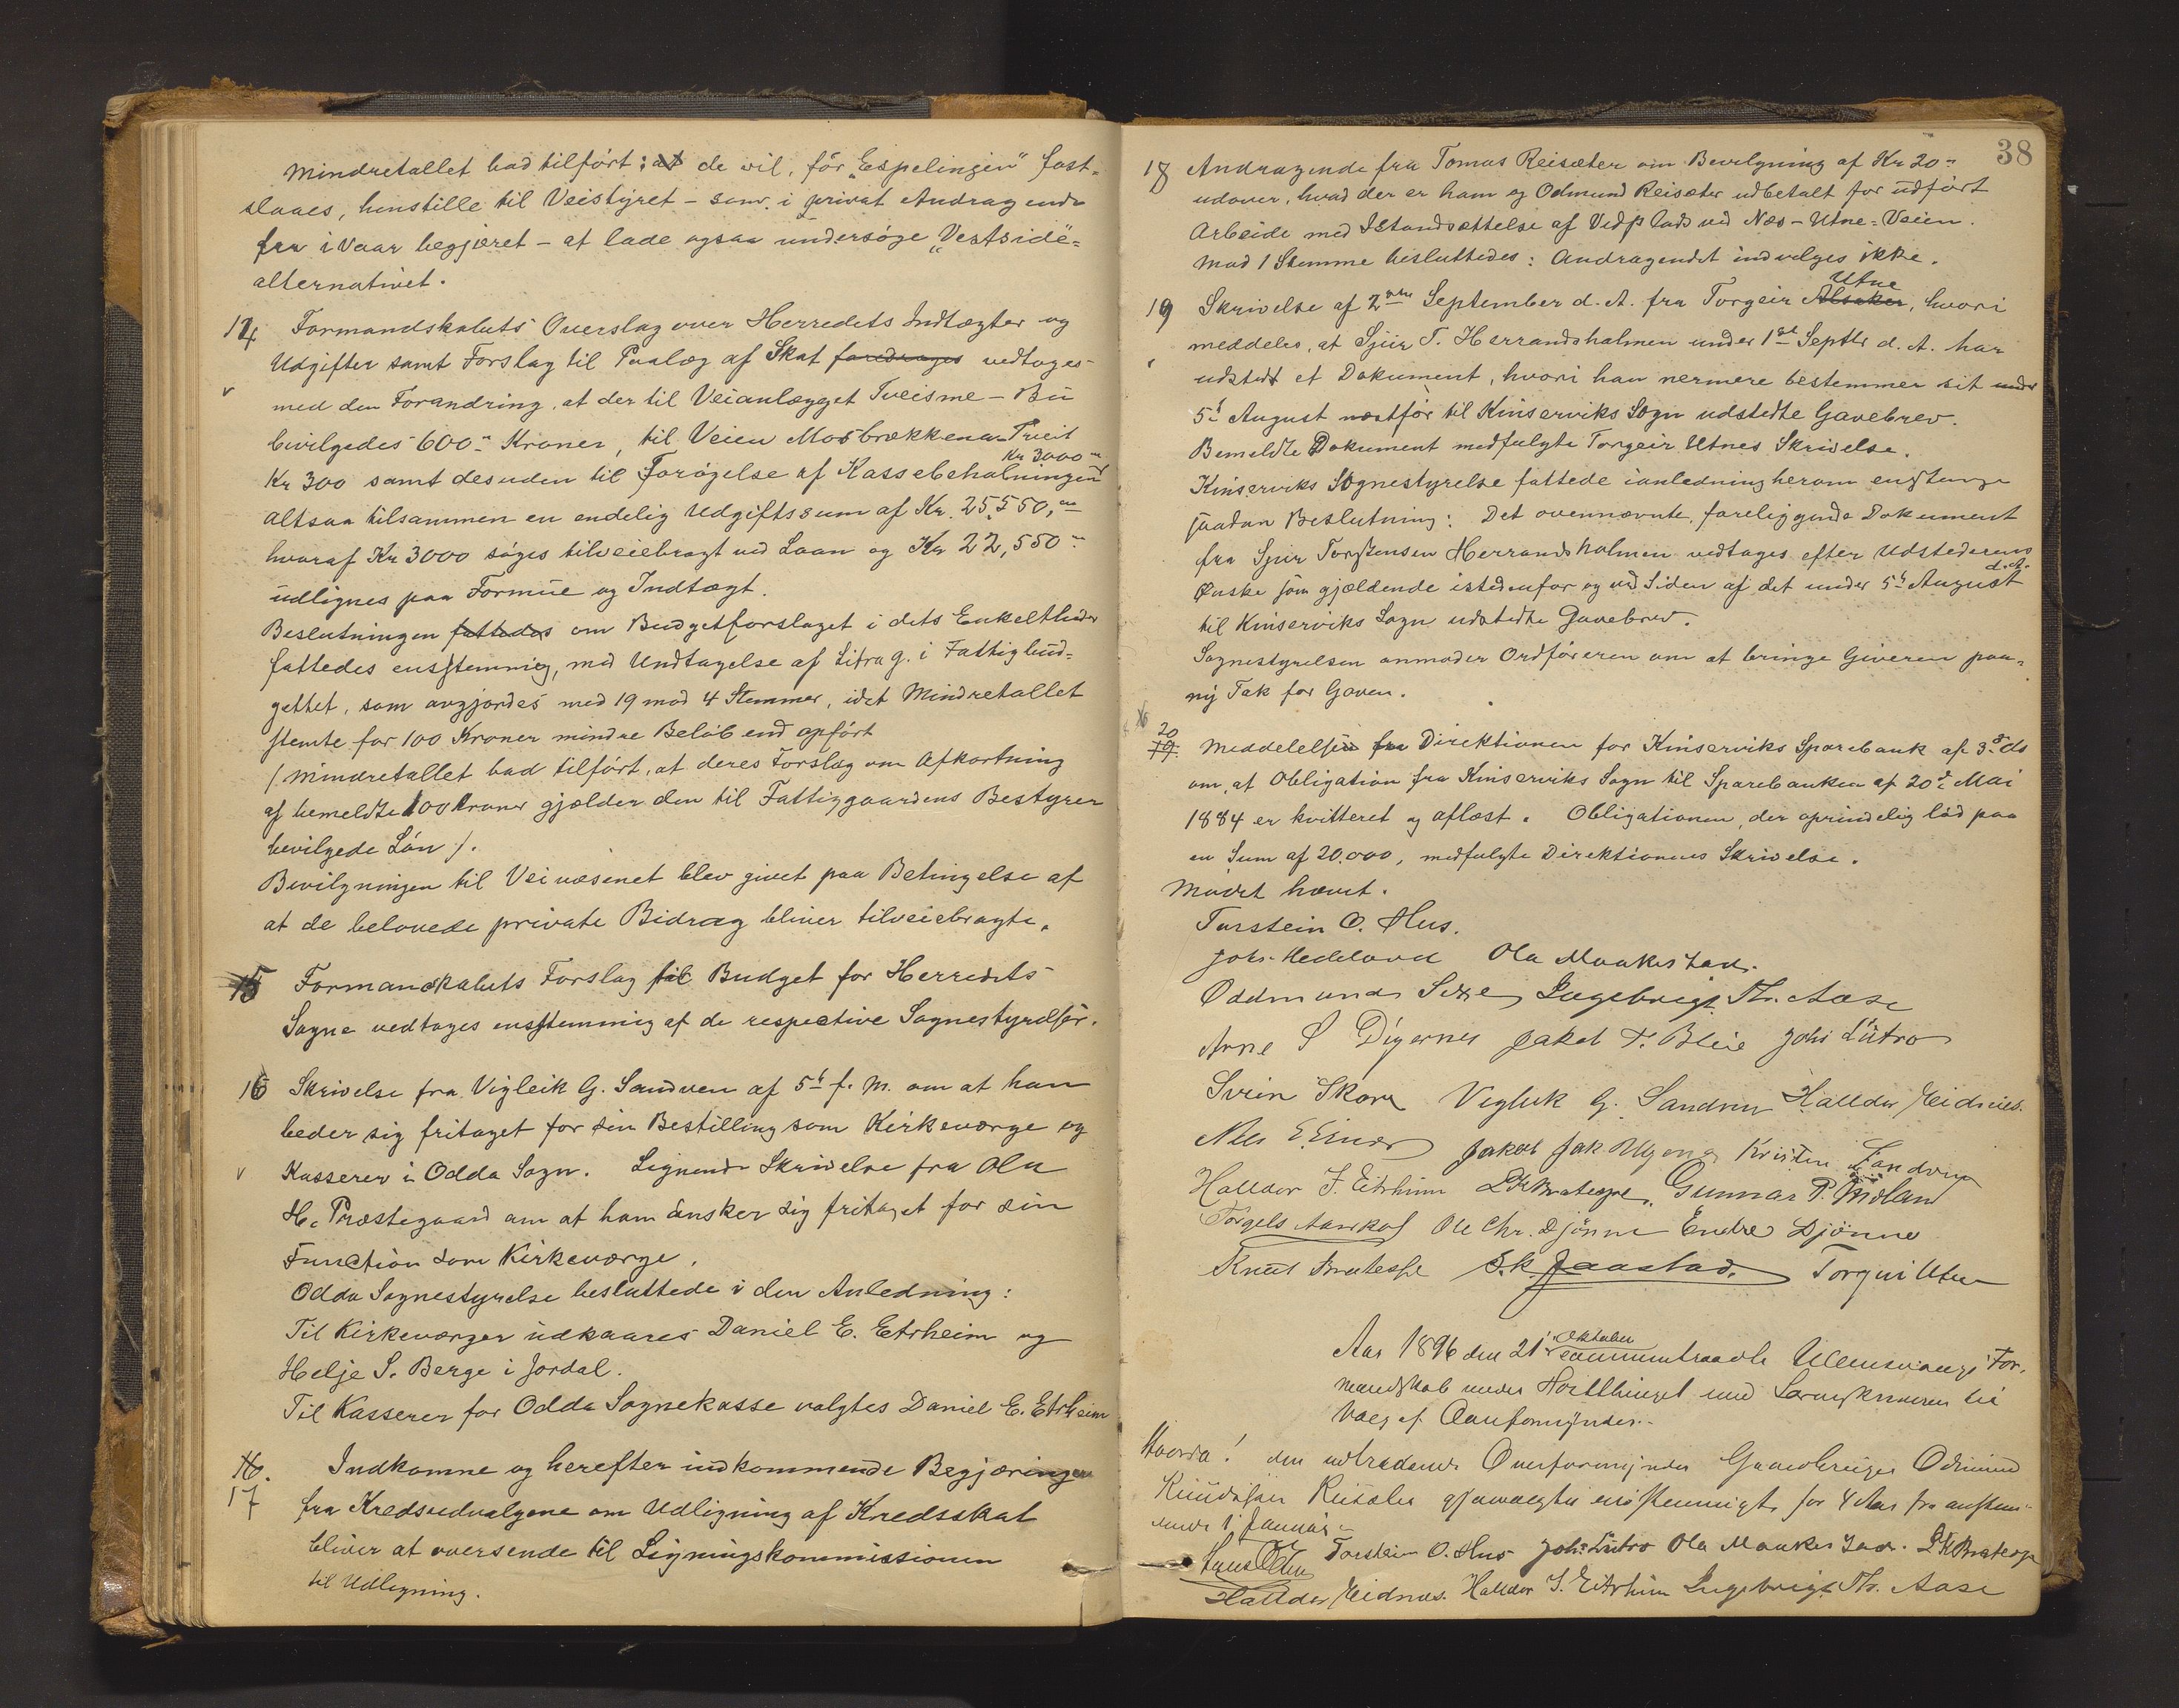 Mindretallet bad tilført: at de vil, før "Espelingen" fast-
slaaes, henstille til Veistyret – som i privat Andragende
fra i Vaar begjæret – at lade ogsaa undersøge "Vestside"-
alternativet.
14 Formandskabets Overslag over Herredets Indtægter og
Udgifter samt Forslag til Paalæg af Skat foredrages vedtoges
v med den Forandring, at der til Veianlægget Tveisme – Bu
bevilgedes 600.- Kroner, til Veien Mosbrækkene-Freit
Kr 3000
Kr 300 samt desuden til Forøgelse af Kassebeholningen
altsaa tilsammen en endelig Udgiftssum af Kr. 25,550,-
hvoraf Kr 3000 søges tilveiebragt ved Laan og Kr 22,550.-
udlignes paa Formue og Indtægt.
Beslutningen fattedes om Budgetforslaget i dets Enkeltheder
fattedes enstemmig, med Undtagelse af Litra g. i Fattigbud-
gettet, som avgjordes med 19 mod 4 Stemmer, idet Mindretallet
stemte for 100 Kroner mindre Beløb end opført
/ Mindretallet bad tilført, at deres Forslag om Afkortning
af bemeldte 100 Kroner gjælder den til Fattiggaardens Bestyrer
bevilgede Løn /.
Bevilgningen til Veivæsenet blev givet paa Betingelse af
at de belovede private Bidrag bliver tilveiebragte.
15 Formandskabets Forslag til Budget for Herredets
Sogne vedtages enstemmig af de respective Sognestyrelser.
16 Skrivelse fra Vigleik G. Sandven af 5t f. M. om at han
beder sig fritaget for sin Bestilling som Kirkeværge og
v Kasserer i Odda Sogn. Lignende Skrivelse fra Ola
H. Præstegaard om at han ønsker sig fritaget for sin
Function som Kirkeværge.
Odda Sognestyrelse besluttede i den Anledning:
Til Kirkeværger udkaares Daniel E. Etrheim og
Helje S. Berge i Jordal.
Til Kasserer for Odda Sognekasse valgtes Daniel E. Etrheim
16. Indkomne og herefter indkommende Begjæringer
17 fra Kredsudvalgene om Udligning af Kredsskat
bliver at oversende til Ligningskommissionen
til Udligning.
38
18 Andragende fra Tomas Reisæter om Bevilgning af Kr 20.-
udover, hvad der er ham og Odmund Reisæter udbetalt for udført
Arbeide med Istandsættelse af Vedplads ved Næs-Utne-Veien.
Mod 1 Stemme besluttedes: Andragendet indvilges ikke.
Utne
19 Skrivelse af 2den September d. A. fra Torgeir Alsaker, hvori
meddeles, at Sjur T. Herrandsholmen under 1ste Septbr d. A. har
udstedt et Dokument, hvori han nermere bestemmer sit under
5t August næstfør til Kinserviks Sogn udstedte Gavebrev.
Bemeldte Dokument medfulgte Torgeir Utnes Skrivelse.
Kinserviks Sognestyrelse fattede i anledning herom enstemmig
saadan Beslutning: Det ovennævnte, foreliggende Dokument
fra Sjur Torstensen Herrandsholmen vedtages efter Udstederens
d. A.
Ønske som gjældende istedenfor og ved Siden af det under 5t August
til Kinserviks Sogn udstedte Gavebrev.
Sognestyrelsen anmoder Ordføreren om at bringe Giveren paa-
ny Tak for Gaven.
20
19. Meddelelsen fra Direktionen for Kinserviks Sparebank af 3die ds
om, at Obligation fra Kinserviks Sogn til Sparebanken af 20de Mai
1884 er kvitteret og aflæst. Obligationen, der oprindelig lød paa
en Sum af 20.000, medfulgte Direktionens Skrivelse.
Mødet hævet.
Torstein O. Hus.
Johs. Hedeland Ola Maakestad.
Oddmund Sexe Ingebrigt Th. Aase
Arne S Digernes Jakob T. Bleie Johs Lutro
Svein Skare Vigleik G. Sandven Halldor Eidnes.
Nils E Einar Jakob Jak Kristen Sandven
Halldor J. Eitrheim L K Bratespe. Gunnar P. Midland
Torgels Ole Chr. Djønne Endre Djønne
Knut Bratespe S. K. Jaastad. Torgeir Utne
Oktober
Aar 1896 den 21 sammentraadte Ullensvangs For-
mandskab under med Sorenskriveren til
Valg af Overformynder.
Hvorda! den udtrædende Overformynder Gaardbruger Odmund
Reisæter gjenvalgtes enstemmigt for 4 Aar fra
1 Januar
Torstein O. Hus Johs Lutro Ola Maakestad. L K Bratespe
Halldor Eidnes. Halldor J. Eitrheim Ingebrigt Th. Aase